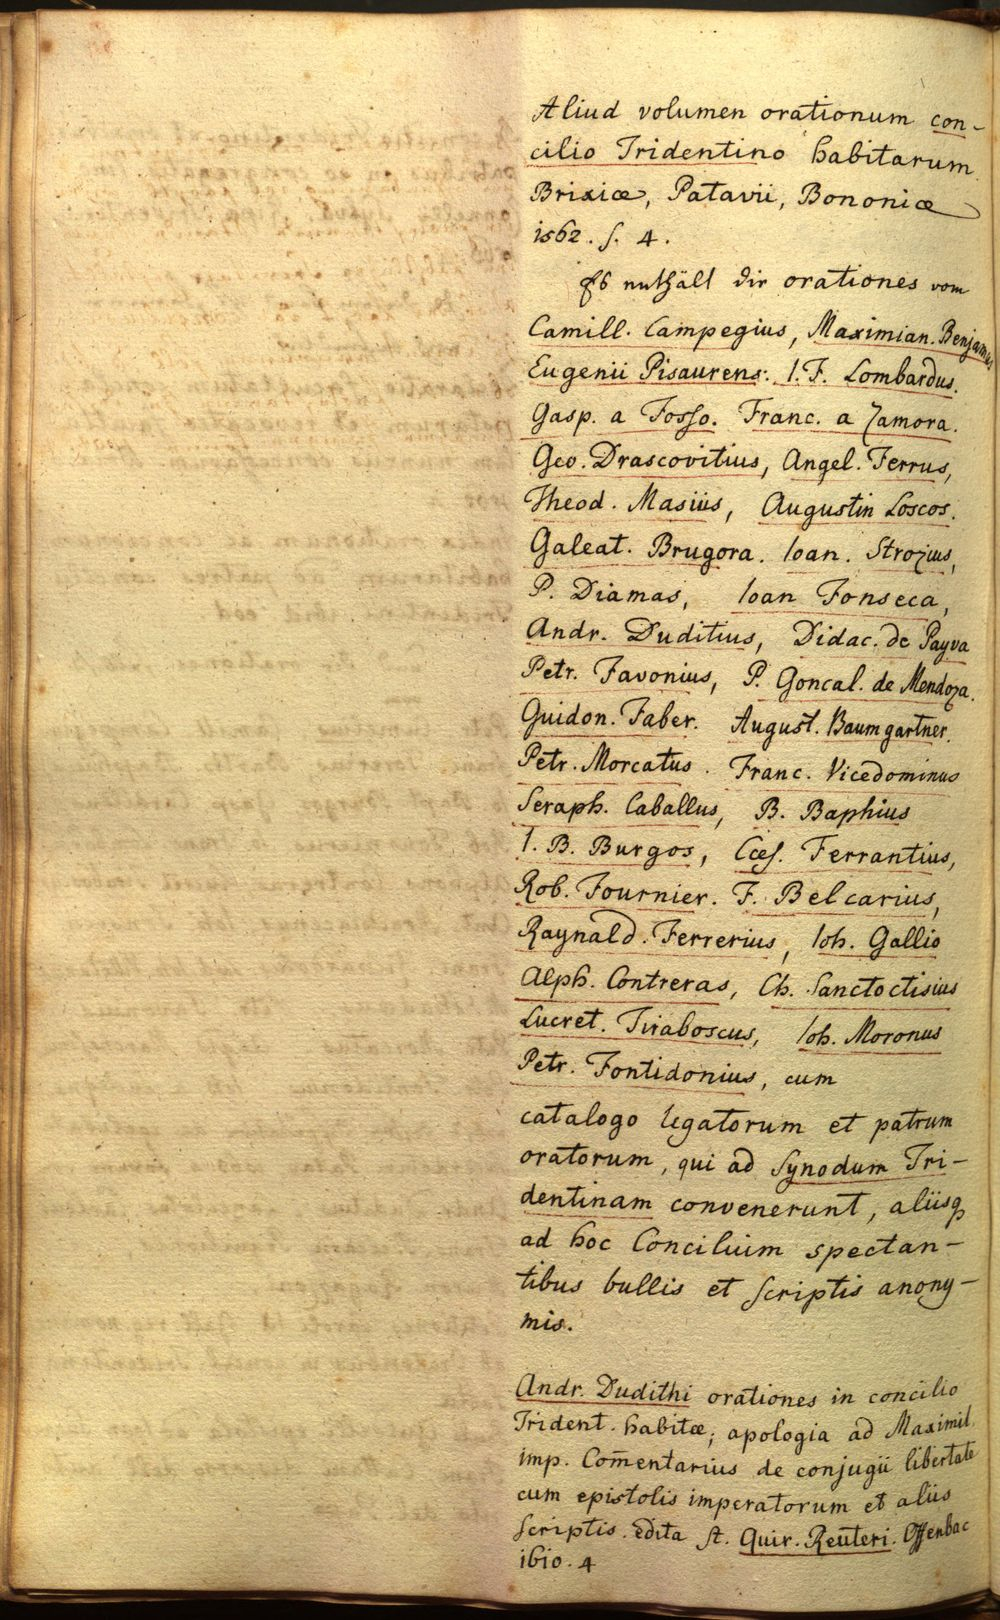 Aliud volumen orationum con-
cilio Tridentino habitarum
Brixiæ, Patavii, Bononiæ
1562. f. 4.
Es enthält die orationes vom
Camill. Campegius, Maximian. Benjamius
Eugenii Pisaurens: I. F. Lombardus.
Gasp. a Fosso. Franc. a Zamora.
Geo. Drascovitius, Angel. Ferrus,
Theod. Masius, Augustin Loscos.
Galeat. Brugora. Ioan. Strozius,
P. Diamas, Ioan Fonseca,
Andr. Duditius, Didac. de Payva
Petr. Favonius, P. Goncal. de Mendoza.
Guidon. Faber. August. Baumgartner.
Petr. Morcatus. Franc. Vicedominus
Seraph. Caballus, B. Baphius
I. B. Burgos, Cæs. Ferrantius,
Rob. Fournier. F. Belcarius,
Raynald. Ferrerius, Ioh. Gallio
Alph. Contreras, Ch. Sanctoctisius
Lucret. Tiraboscus, Ioh. Moronus
Petr. Fontidonius, cum
catalogo legatorum et patrum
oratorum, qui ad Synodum Tri-
dentinam convenerunt, aliisq
ad hoc Concilium spectan-
tibus bullis et scriptis anony-
mis.
Andr. Dudithi orationes in concilio
Trident. habitæ, apologia ad Maximil.
imp. Com̅entarius de conjugii libertate
cum epistolis imperatorum et aliis
scriptis. edita st. Quir. Reuteri. Offenbac
1610. 4